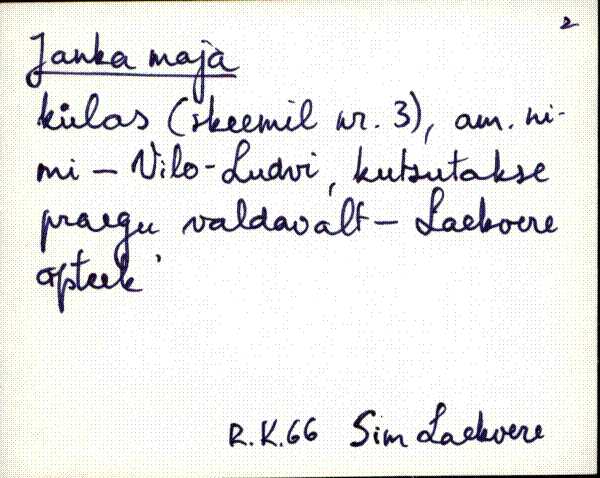 2
Janka maja
külas (skeemil nr. 3), am. ni-
mi – Vilo-Ludvi, kutsutakse
praegu valdavalt – Laekvere
apteek
R.K.66 Sim Laekvere